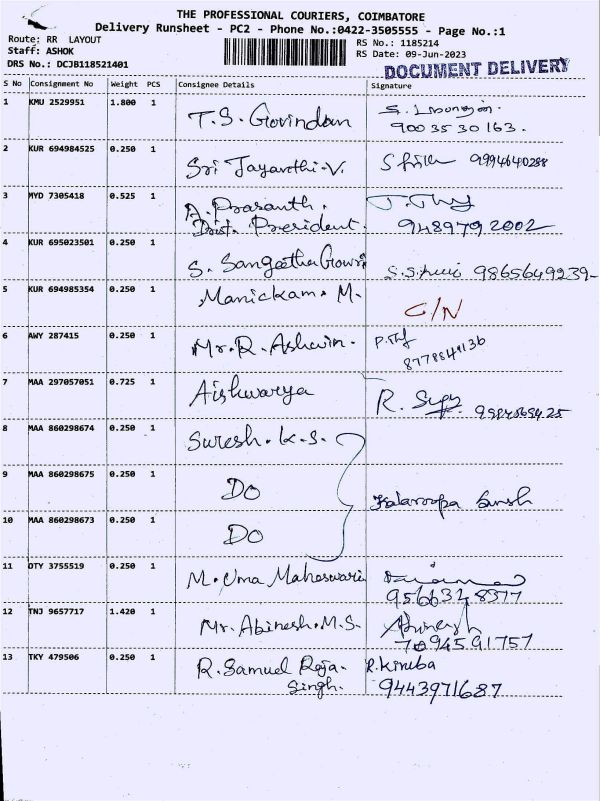 THE PROFESSIONAL COURIERS, COIMBATORE
Delivery Runsheet - PC2 - Phone No.:0422-3505555 - Page No.:1
Route: RR LAYOUT
RS No.: 1185214
Staff: ASHOK
RS Date: 09-Jun-2023
DRS No.: DCJB118521401
DOCUMENT DELIVERY
S No Consignment No Weight PCS Consignee Details Signature
1 KMU 2529951 1.800 1 T.S. Govindan
9003530163.
2 KUR 694984525 0.250 1 Sri Jayavthi. V. 9994640288
3 MYD 7305418 0.525 1 A. Prasanth.
Dist. President. 9489792002
4 KUR 695023501 0.250 1 S. Sangeetha Gowri 9865649239
5 KUR 694985354 0.250 1 Manickam. M. C/N
6 AWY 287415 0.250 1 Mr. R. Ashwin.
7 MAA 297057051 0.725 1 Aishwarya R.
8 MAA 860298674 0.250 1 Suresh. K.S.
9 MAA 860298675 0.250 1 Do Kalaroopa Suresh
10 MAA 860298673 0.250 1 Do
11 OTY 3755519 0.250 1 M. Uma Maheswari
9566328377
12 TNJ 9657717 1.420 1 Mr. Abinesh. M.S. Abinesh
7094591757
13 TKY 479506 0.250 1 R. Samuel Raja R. Kiruba
Singh. 9443971687